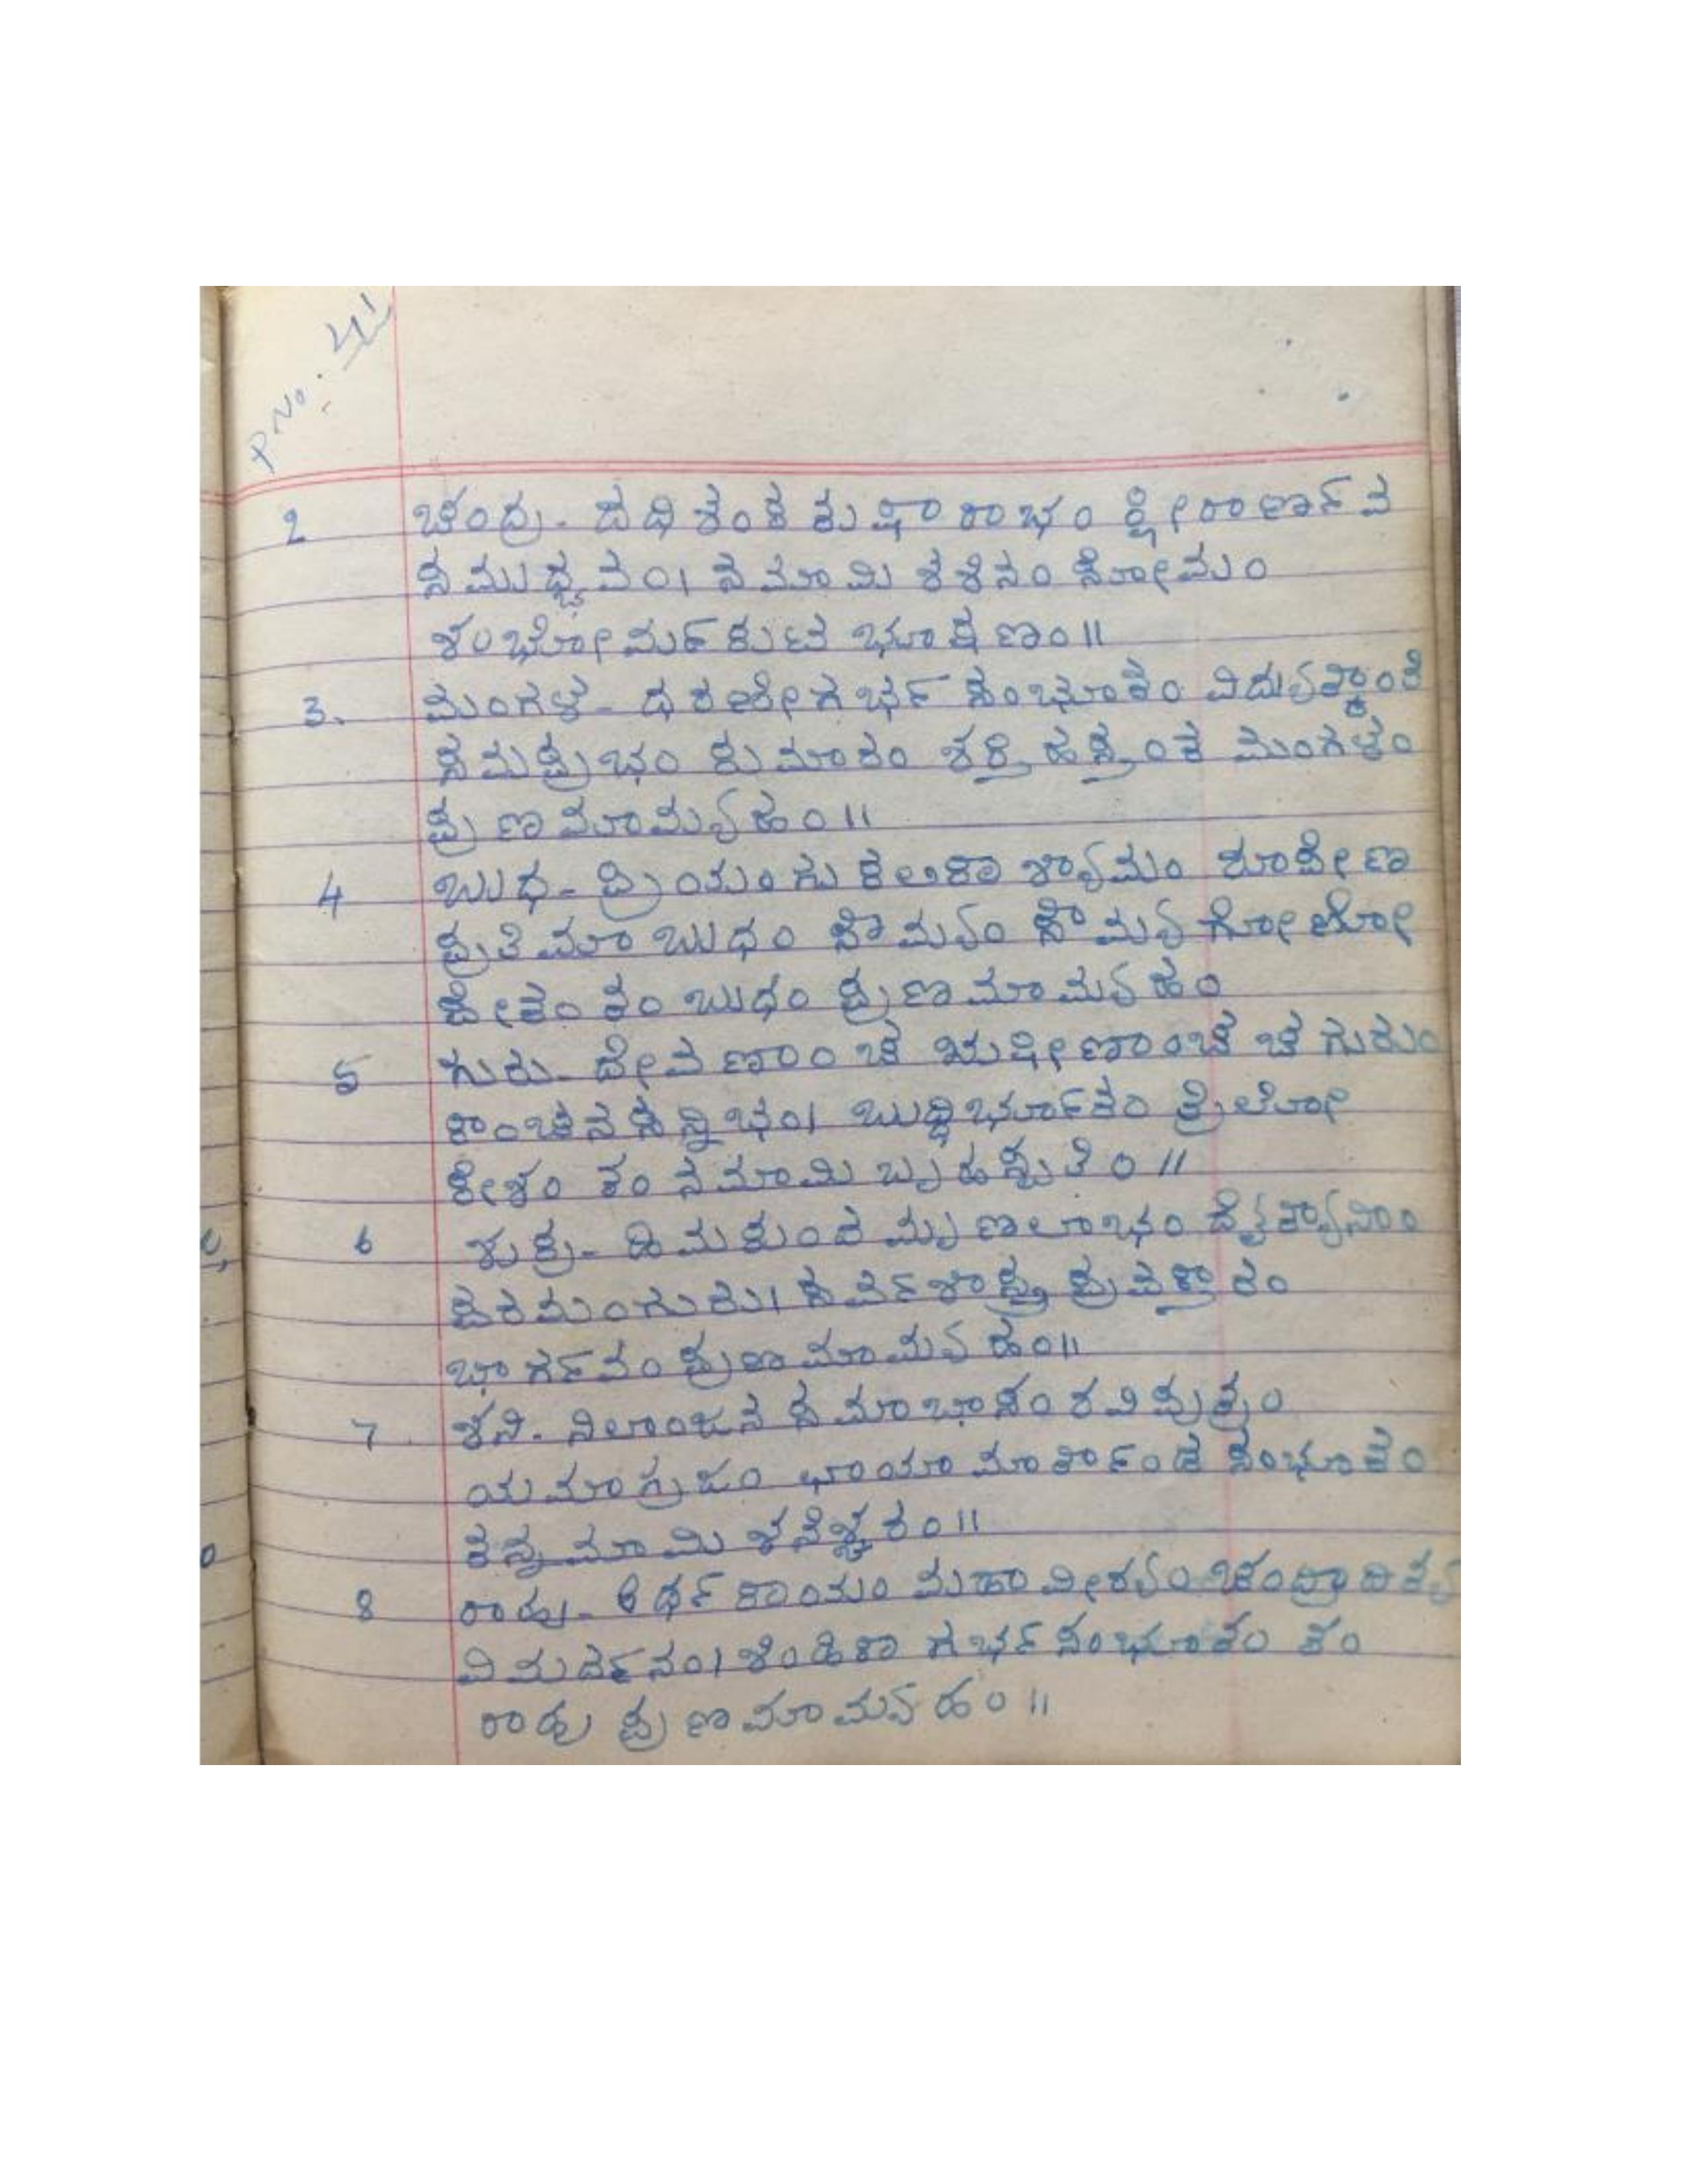 P No. 41
2 ಚಂದ್ರ - ದಧಿ ಶಂಕ ತುಷಾರಾಭಂ ಕ್ಷೀರಾರ್ಣವ
ಸಮುದ್ಭವಂ। ನಮಾಮಿ ಶಶಿನಂ ಸೋಮಂ
ಶಂಭೋರ್ಮಕುಟ ಭೂಷಣಂ॥
3. ಮಂಗಳ - ಧರಣೀಗರ್ಭ ಸಂಭೂತಂ ವಿದ್ಯುತ್ಕಾಂತಿ
ಸಮಪ್ರಭಂ ಕುಮಾರಂ ಶಕ್ತಿ ಹಸ್ತಂತ ಮಂಗಳಂ
ಪ್ರಣಮಾಮ್ಯಹಂ॥
4 ಬುಧ - ಪ್ರಿಯಂಗು ಕಲಿಕಾ ಶ್ಯಾಮಂ ರೂಪೇಣಾ
ಪ್ರತಿಮಾ ಬುಧಂ ಸೌಮ್ಯಂ ಸೌಮ್ಯ ಗೋಣೋ
ಪೇತಂ ತಂ ಬುಧಂ ಪ್ರಣಮಾಮ್ಯಹಂ
5 ಗುರು - ದೇವಣಾಂ ಚ ಋಷೀಣಾಂಚ ಚ ಗುರುಂ
ಕಾಂಚನ ಸನ್ನಿಭಂ। ಬುದ್ಧಿರ್ಭೂತಂ ತ್ರಿಲೋ
ಕೇಶಂ ತಂ ನಮಾಮಿ ಬೃಹಸ್ಪತಿಂ॥
6 ಶುಕ್ರ - ಹಿಮಕುಂದ ಮೃಣಲಾಭಂ ದೈತ್ಯಾನಾಂ
ಪರಮಂಗುರು। ಸರ್ವಶಾಸ್ತ್ರ ಪ್ರವಕ್ತಾರಂ
ಭಾರ್ಗವಂ ಪ್ರಣಮಾಮ್ಯಹಂ॥
7 ಶನಿ - ನಿಲಾಂಜನ ಸಮಾಭಾಸಂ ರವಿ ಪುತ್ರಂ
ಯಮಾಗ್ರಜಂ ಛಾಯಾ ಮಾರ್ತಾಂಡ ಸಂಭೂತಂ
ತನ್ನಮಾಮಿ ಶನೆಶ್ಚರಂ॥
8 ರಾಹು - ಅರ್ಧಕಾಯಂ ಮಹಾ ವೀರ್ಯಂ ಚಂದ್ರಾದಿತ್ಯ
ವಿಮರ್ದನಂ। ಸಿಂಹಿಕಾ ಗರ್ಭಸಂಭೂತಂ ತಂ
ರಾಹು ಪ್ರಣಮಾಮ್ಯಹಂ॥